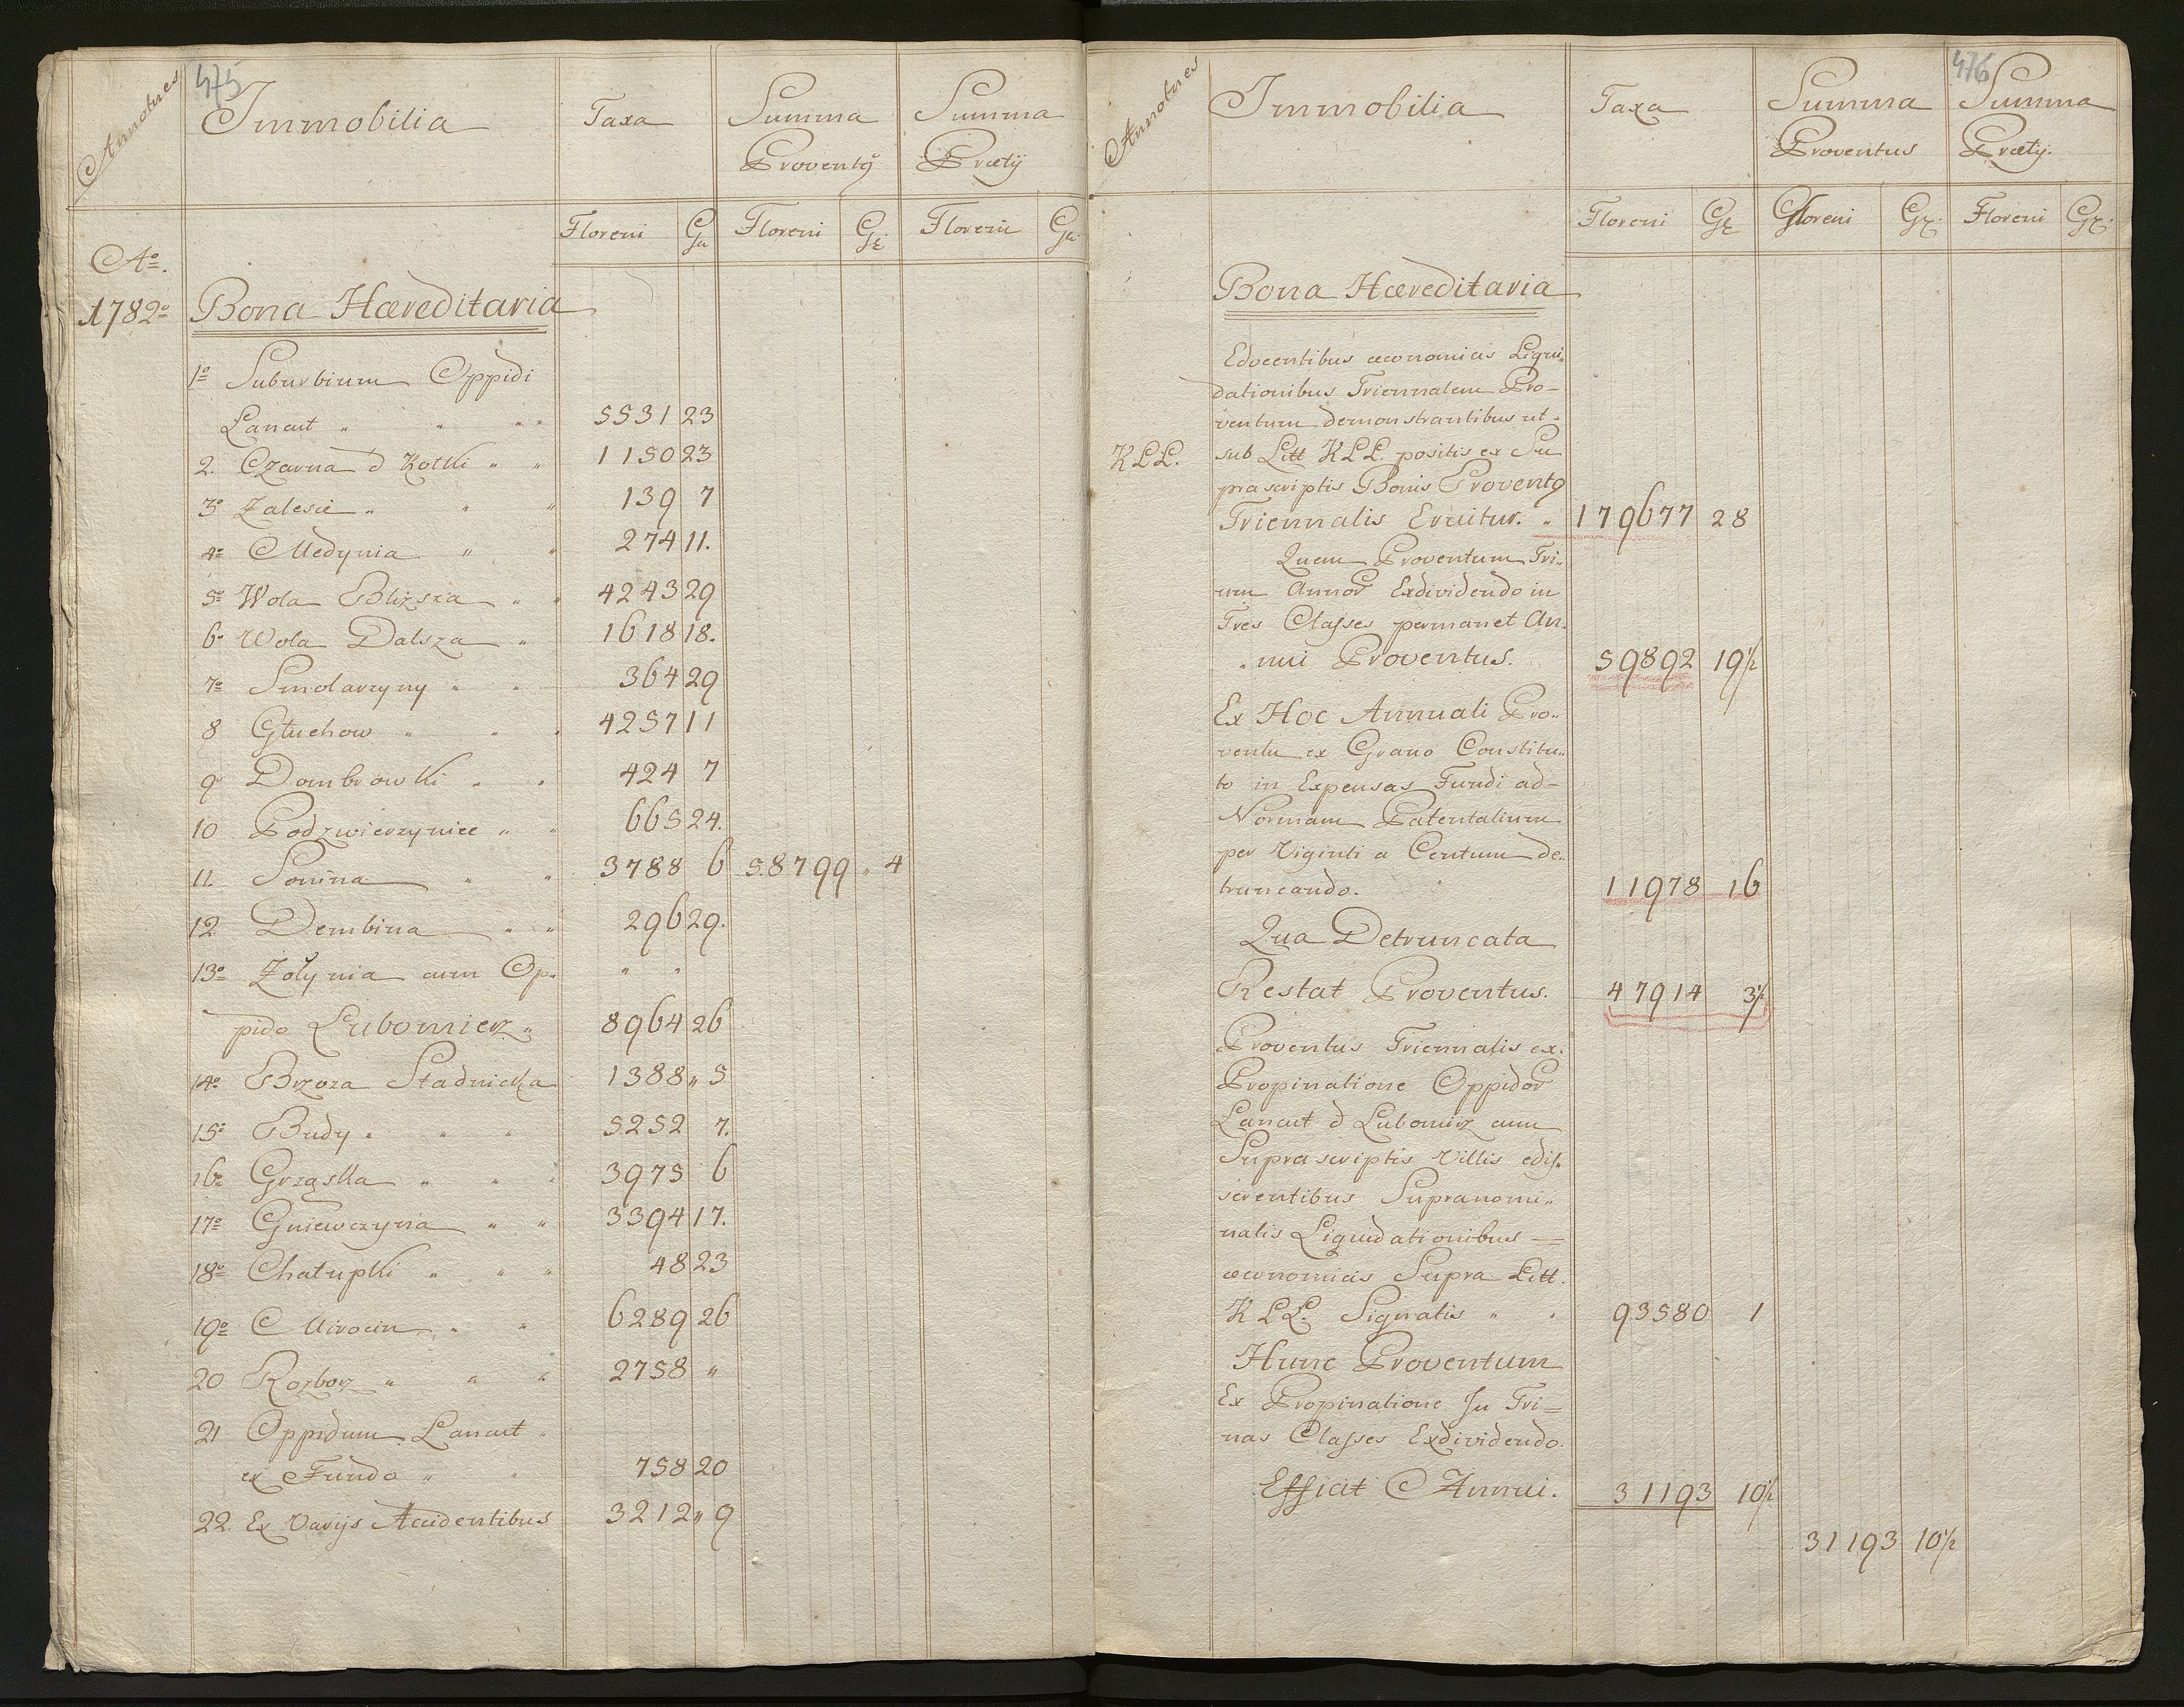 475
Annotnes Immobilia Taxa Summa Summa
Proventꝰ Prætij
Floreni Gr Floreni Gr. Floreni Gr.
Aº.
1782º Bona Hæreditaria
1º Suburbium Oppidi
Lancut „ „ „ „ 5531 23
2. Czarna & Kotki „ „ 1150 23
3º Zalesie „ „ „ 139 7
4º Medynia „ „ 274 11.
5º Wola Bliższa „ „ 4243 29
6º Wola Dalsza „ 1618 18.
7º Smolarzyny „ „ 364 29
8 Głuchow „ „ „ 4257 11
9º Dombrowki „ „ 424 7
10 Podzwierzyniec „ „ 665 24.
11. Sonina „ „ 3788 6 58799 „ 4
12 Dembina „ „ 296 29.
13º Zołynia cum Op- „ „
pido Lubomierz „ 8964 26
14º Brzoza Stadnicka 1388 „ 5
15º Budy „ „ „ 5252 7.
16º Grząska „ „ „ 3975 6
17º Gniewczyna „ „ 3394 17.
18º Chałupki „ „ „ 48 23
19º Mirocin „ „ 6289 26
20 Rozborz „ „ „ 2758 „
21 Oppidum Lancut „
ex Fundo „ „ 758 20
22. Ex Varijs Accidentibus 3212 „ 9
476
Annotnes Immobilia Taxa Summa Summa
Proventus Prætij.
Floreni Gr Floreni Gr. Floreni Gr.
Bona Hæreditaria
Edocentibus œconomicis Liqui„
dationibus Triennalem Pro-
ventum demonstrantibus ut-
KLL. sub Litt KLL. positis ex Su
prascriptis Bonis Proventꝰ
Triennalis Eruitur. „ 179677 28
Quem Proventum Tri„
um Annor Exdividendo in
Tres Classes permanet An.
„nui Proventus. 59892 19½
Ex Hoc Annuali Pro„
ventu ex Grano Constitu„
to in Expensas Fundi ad-
Normam Patentalium
per Viginti a Centum de„
truncando. 11978 16
Qua Detruncata
Restat Proventus. 47914 3½
Proventus Triennalis ex.
Propinatione Oppidor
Lancut & Lubomirz cum
Suprascriptis Villis edis„
serentibus Supranomi„
natis Liquidationibus =
œconomicis Supra Litt.
KLL. Signatis „ „ 93580 1
Hunc Proventum
Ex Propinatione In Tri=
nas Classes Exdividendo.
Efficit Annui. 31193 10½
31193 10½